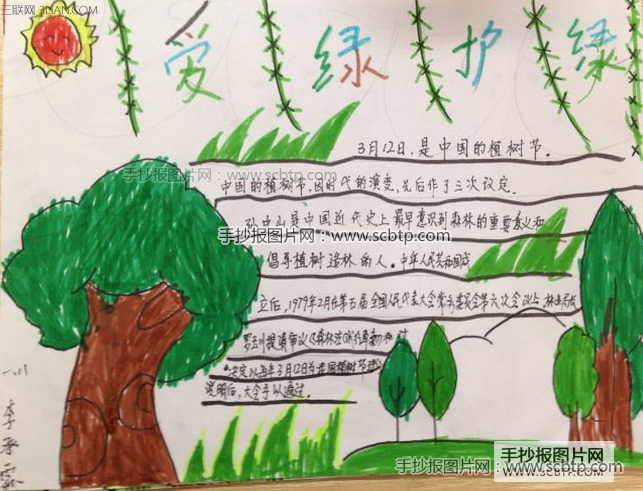 三联网 3LIAN.COM
爱绿护绿
3月12日,是中国的植树节。
中国的植树节,因时代的演变,先后作了三次改定。
手抄报图片网 www.scbtp.com
孙中山是中国近代史上最早意识到森林的重要意义和
手抄报图片网- www.scbtp.com
倡导植树造林的人。中华人民共和国成
立后,1979年2月在第五届全国人民代表大会常务委员会第六次会议上,林业局长
提请审议《森林法
决定以每年3月12日为我国植树节
说明后,大会予以通过。
一、八
李承霖
手抄报图片网 www.scbtp.com
手抄报图片网
www.scbtp.com